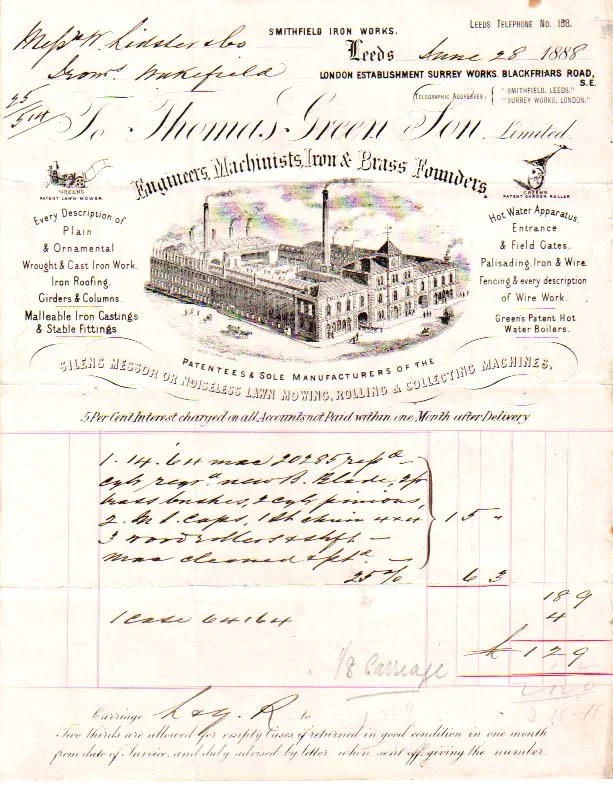 SMITHFIELD IRON WORKS.
LEEDS TELEPHONE No. 138.
Messrs W. Lidster & Co
Leeds June 28 1888
Wakefield
LONDON ESTABLISHMENT SURREY WORKS. BLACKFRIARS ROAD,
S.E.
TELEGRAPHIC ADDRESSES: "SMITHFIELD, LEEDS."
"SURREY WORKS, LONDON."
25/514
To Thomas Green & Son, Limited.
Engineers, Machinists, Iron & Brass Founders,
GREENS
PATENT LAWN MOWER
GREEN'S
PATENT GARDEN ROLLER
Every Description of
Plain
& Ornamental
Wrought & Cast Iron Work.
Iron Roofing,
Girders & Columns.
Malleable Iron Castings
& Stable Fittings.
Hot Water Apparatus,
Entrance
& Field Gates,
Palisading, Iron & Wire
Fencing & every description
of Wire Work.
Green's Patent Hot
Water Boilers.
PATENTEES & SOLE MANUFACTURERS OF THE
SILENS MESSOR OR NOISELESS LAWN MOWING, ROLLING & COLLECTING MACHINES.
5 Per Cent Interest charged on all Accounts not Paid within one Month after Delivery
1. 14. 64 mac 20285 repd
new B. Blade, 2 pr
brass bushes, 2 cyl pinions,
2. caps, 1 chain 15 "
3 wood rollers & shft
mac cleaned & ptd
25% 6 3
18 9
1 case 64164 4
1 2 9
1/8 Carriage
Carriage L & Y. R to
Two thirds are allowed for empty Cases if returned in good condition in one month
from date of Invoice, and duly advised by letter when sent off, giving the number.